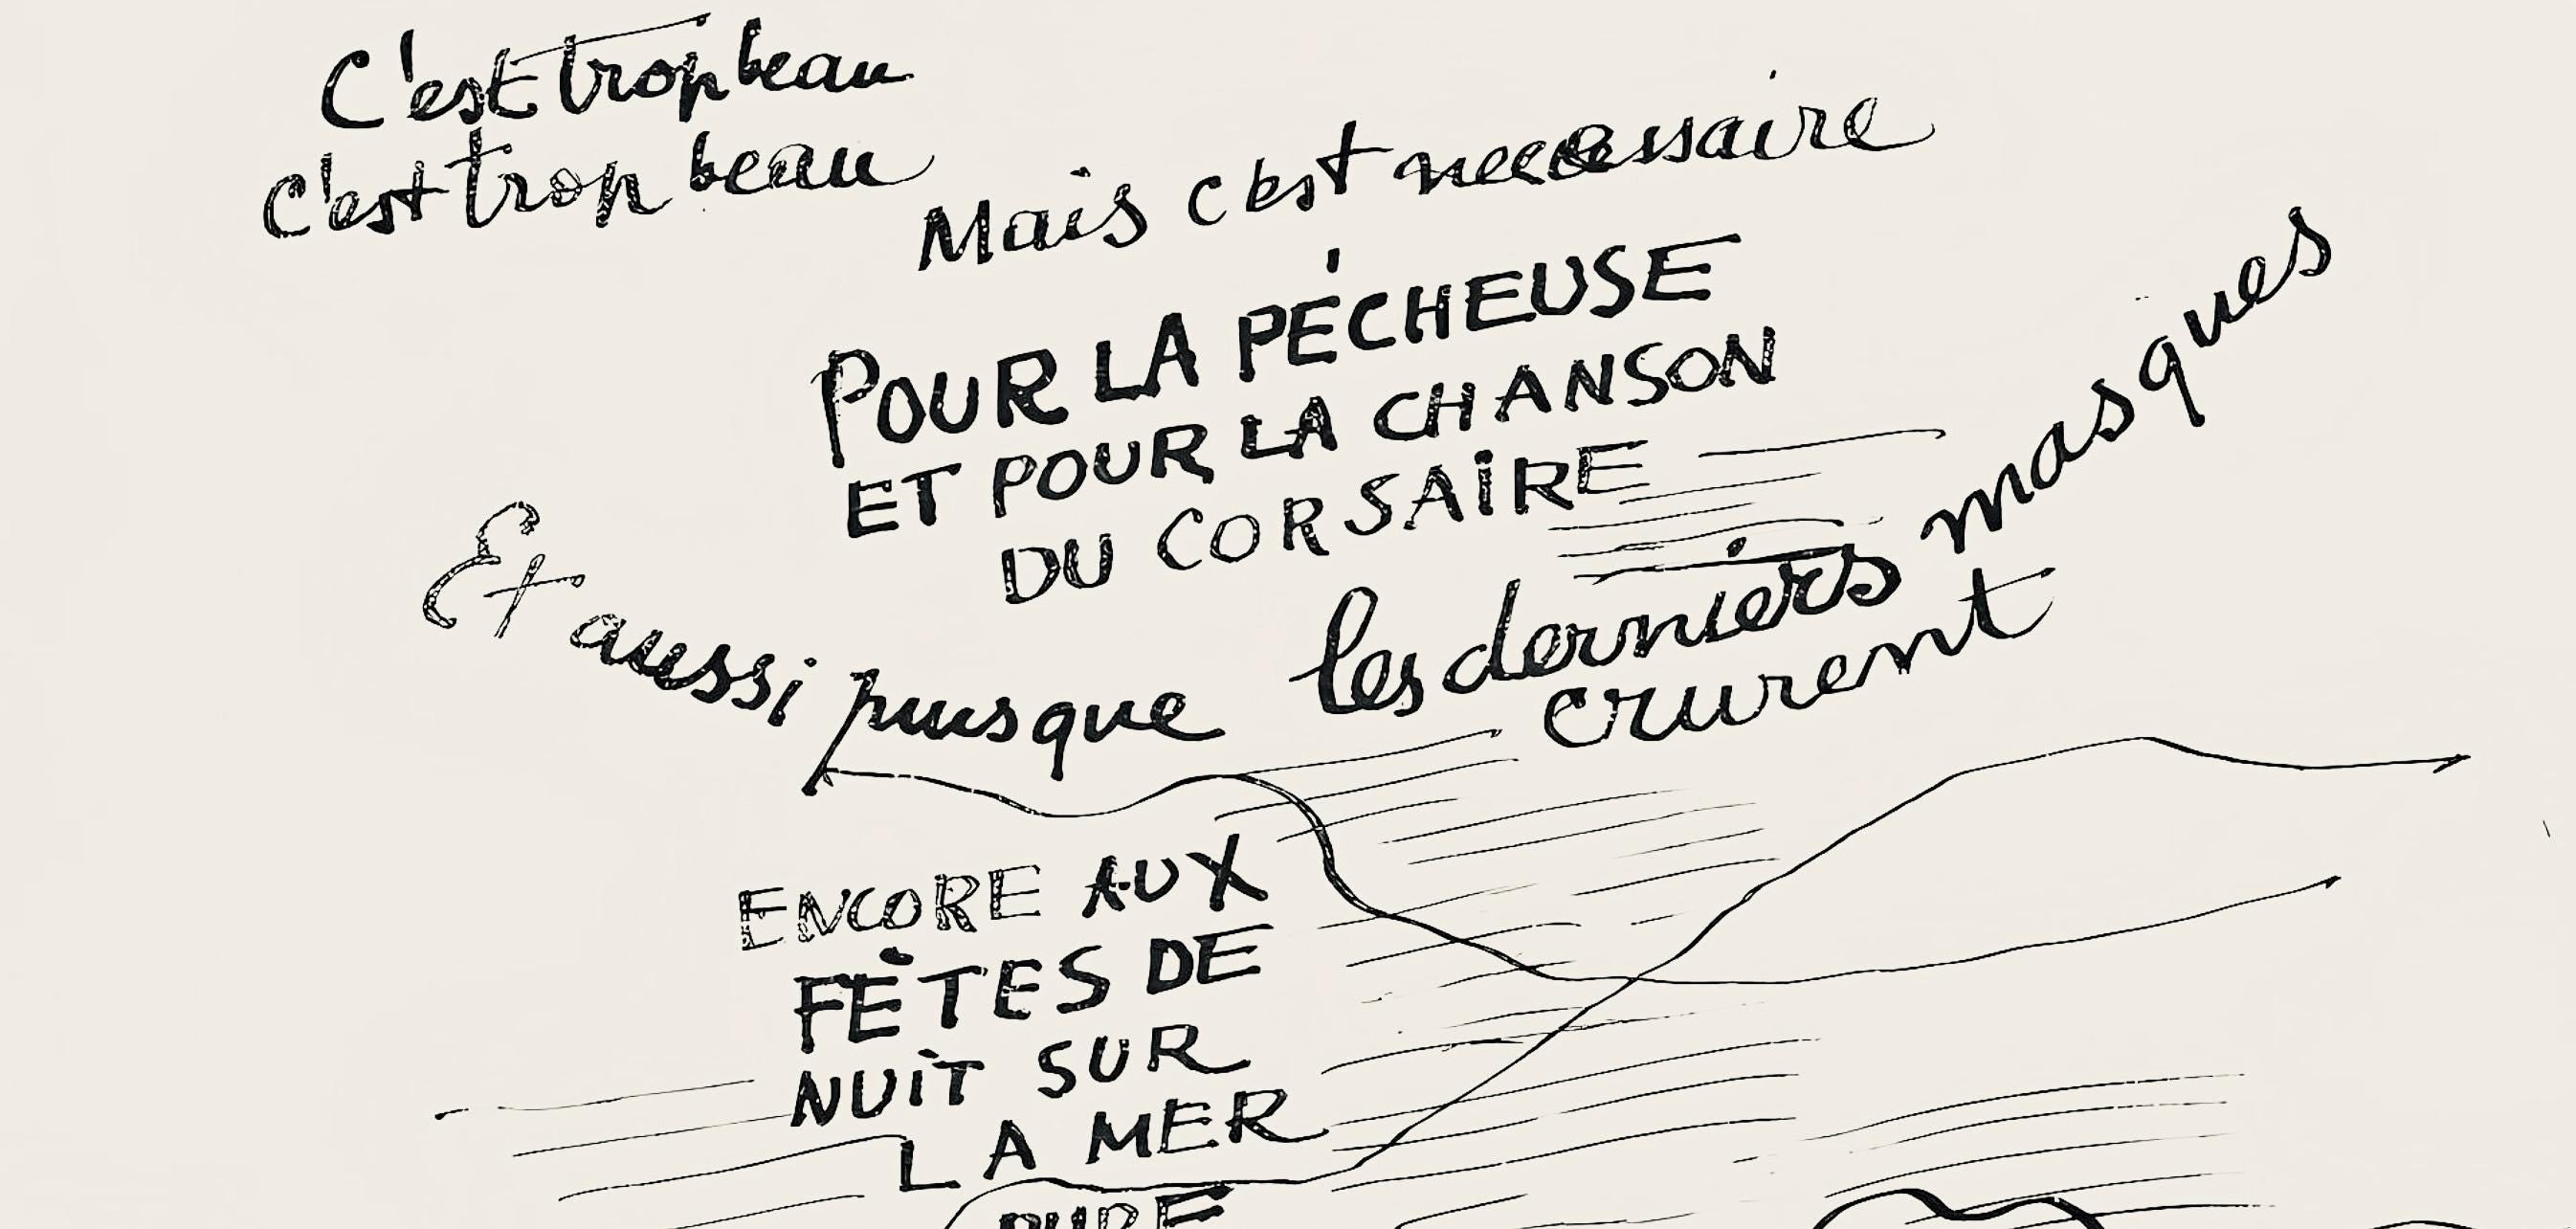 C'est trop beau
c'est trop beau
Mais c'est necessaire
POUR LA PÉCHEUSE
ET POUR LA CHANSON
DU CORSAIRE
Et aussi pusque les derniers masques
crurent
ENCORE AUX
FÈTES DE
NUIT SUR
LA MER
PURE